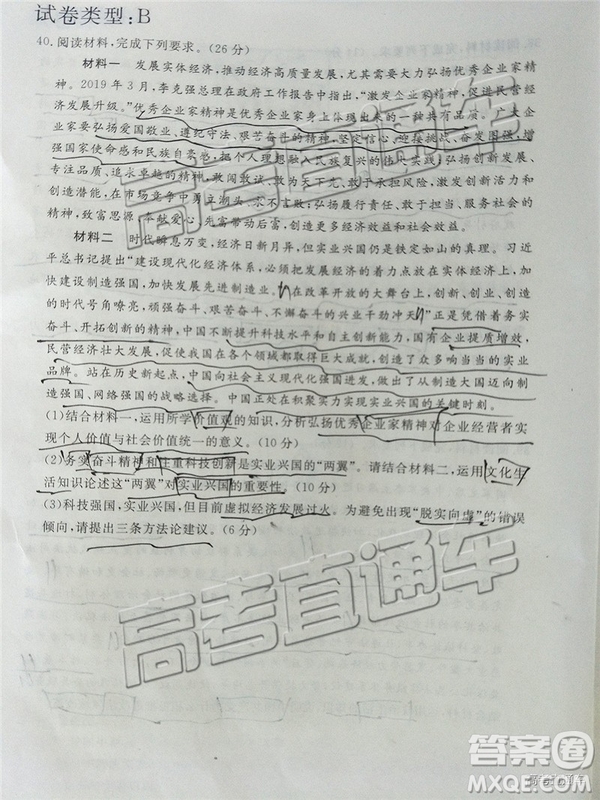 试卷类型:B
40.阅读材料,完成下列要求。(26分)
材料一 发展实体经济,推动经济高质量发展,尤其需要大力弘扬优秀企业家精
神。2019年3月,李克强总理在政府工作报告中指出,“激发企业家精神,促进民营经
济发展升级。”优秀企业家精神是优秀企业家身上体现出来的一种共有品质。广大企
业家要弘扬爱国敬业、遵纪守法、艰苦奋斗的精神,坚定信心、迎接挑战、奋发图强,增
强国家使命感和民族自豪感,把个人理想融入民族复兴的伟大实践;弘扬创新发展、
专注品质、追求卓越的精神,敢闯敢试、敢为天下先、敢于承担风险,激发创新活力和
创造潜能,在市场竞争中勇立潮头、求不言败;弘扬履行责任、敢于担当、服务社会的
精神,致富思源、奉献爱心、先富带动后富,创造更多经济效益和社会效益。
材料二 时代瞬息万变,经济日新月异,但实业兴国仍是铁定如山的真理。习近
平总书记提出“建设现代化经济体系,必须把发展经济的着力点放在实体经济上,加
快建设制造强国,加快发展先进制造业。”在改革开放的大舞台上,创新、创业、创造
的时代号角嘹亮,顽强奋斗、艰苦奋斗、不懈奋斗的兴业干劲冲天”正是凭借着务实
奋斗、开拓创新的精神,中国不断提升科技水平和自主创新能力,国有企业提质增效,
民营经济壮大发展,促使我国在各个领域都取得巨大成就,创造了众多响当当的实业
品牌。站在历史新起点,中国向社会主义现代化强国进发,做出了从制造大国迈向制
造强国、网络强国的战略选择。中国正处在积聚实力实现实业兴国的关键时刻。
(1)结合材料一,运用所学价值观的知识,分析弘扬优秀企业家精神对企业经营者实
现个人价值与社会价值统一的意义。(10分)
(2)务实奋斗精神和注重科技创新是实业兴国的“两翼”。请结合材料二,运用文化生
活知识论述这“两翼”对实业兴国的重要性。(10分)
(3)科技强国,实业兴国,但目前虚拟经济发展过火。为避免出现“脱实向虚”的错误
倾向,请提出三条方法论建议。(6分)
高考直通车
高考直通车
答案圈
MXQE.COM